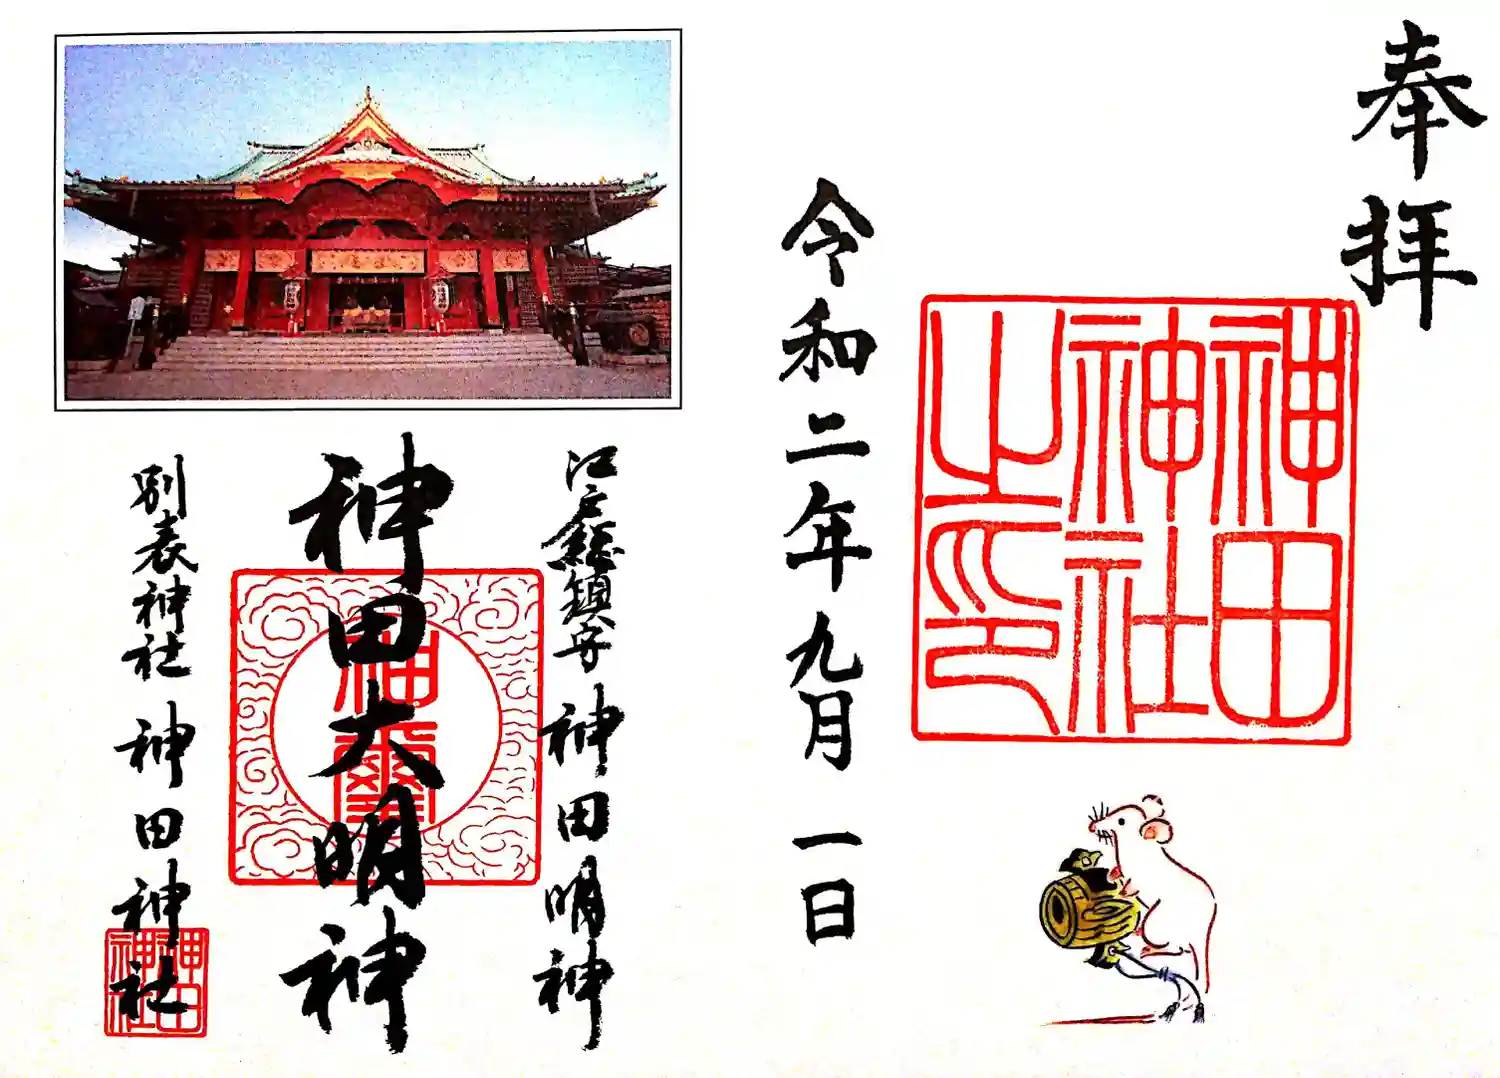 奉拝
神田
神社
之印
令和二年九月一日
江戸總鎮守 神田明神
神田大明神
神璽
別表神社 神田神社
神田
神社